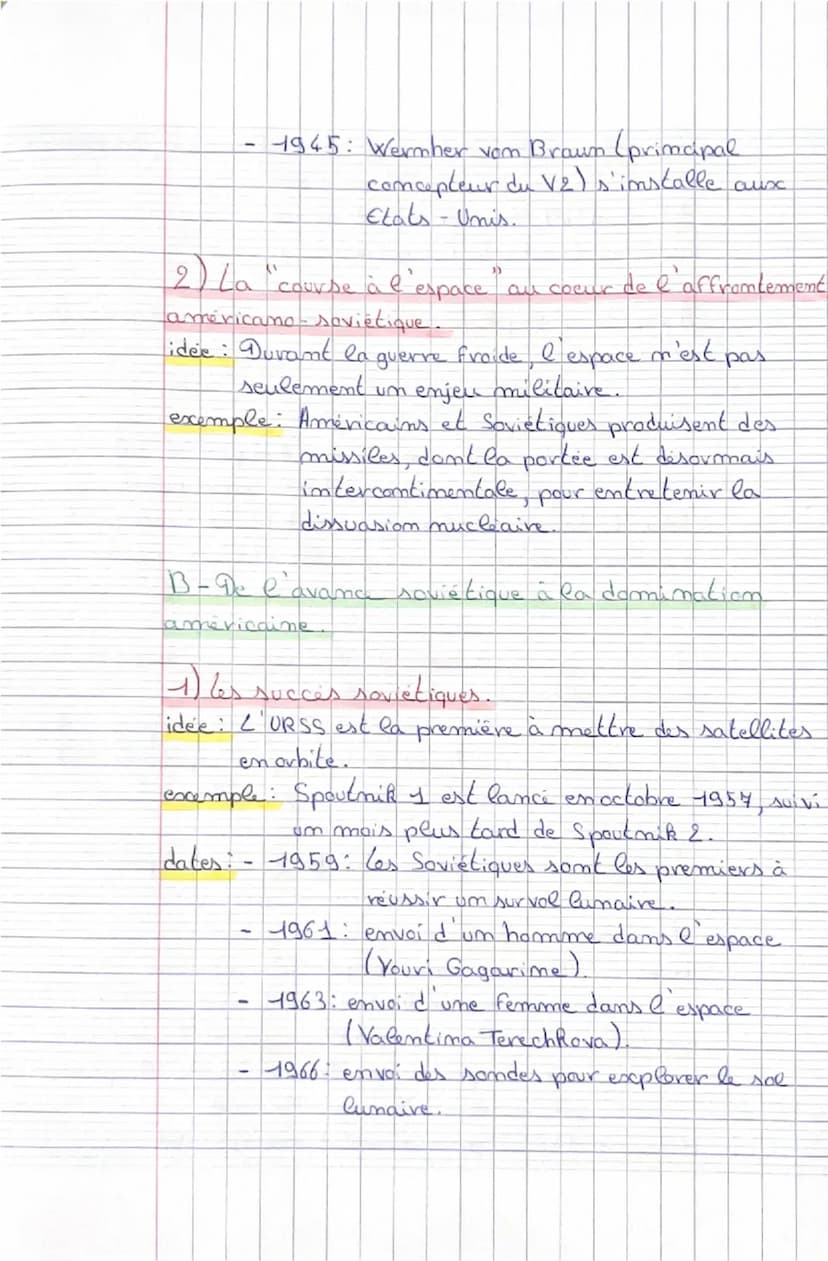 - 1945: Wernher von Braun (principal
concepteur du V2) s'installe aux
Etats-Unis.
2) La "course à l'espace" au coeur de l'affrontement
américano-soviétique.
idée: Durant la guerre froide, l'espace n'est pas
seulement un enjeu militaire.
exemple: Américains et Soviétiques produisent des
missiles, dont la portée est désormais
intercontinentale, pour entretenir la
dissuasion nucléaire.
B-De l'avance soviétique à la domination
américaine.
1) les succès soviétiques.
idée: L'URSS est la première à mettre des satellites
en orbite.
exemple: Spoutnik 1 est lancé en octobre 1957, suivi
un mois plus tard de Spoutnik 2.
dates: - 1959: les Soviétiques sont les premiers à
réussir un survol lunaire.
- 1961: envoi d'un homme dans l'espace
(Youri Gagarine).
- 1963: envoi d'une femme dans l'espace
(Valentina Terechkova).
- 1966: envoi des sondes pour explorer le sol
lunaire.